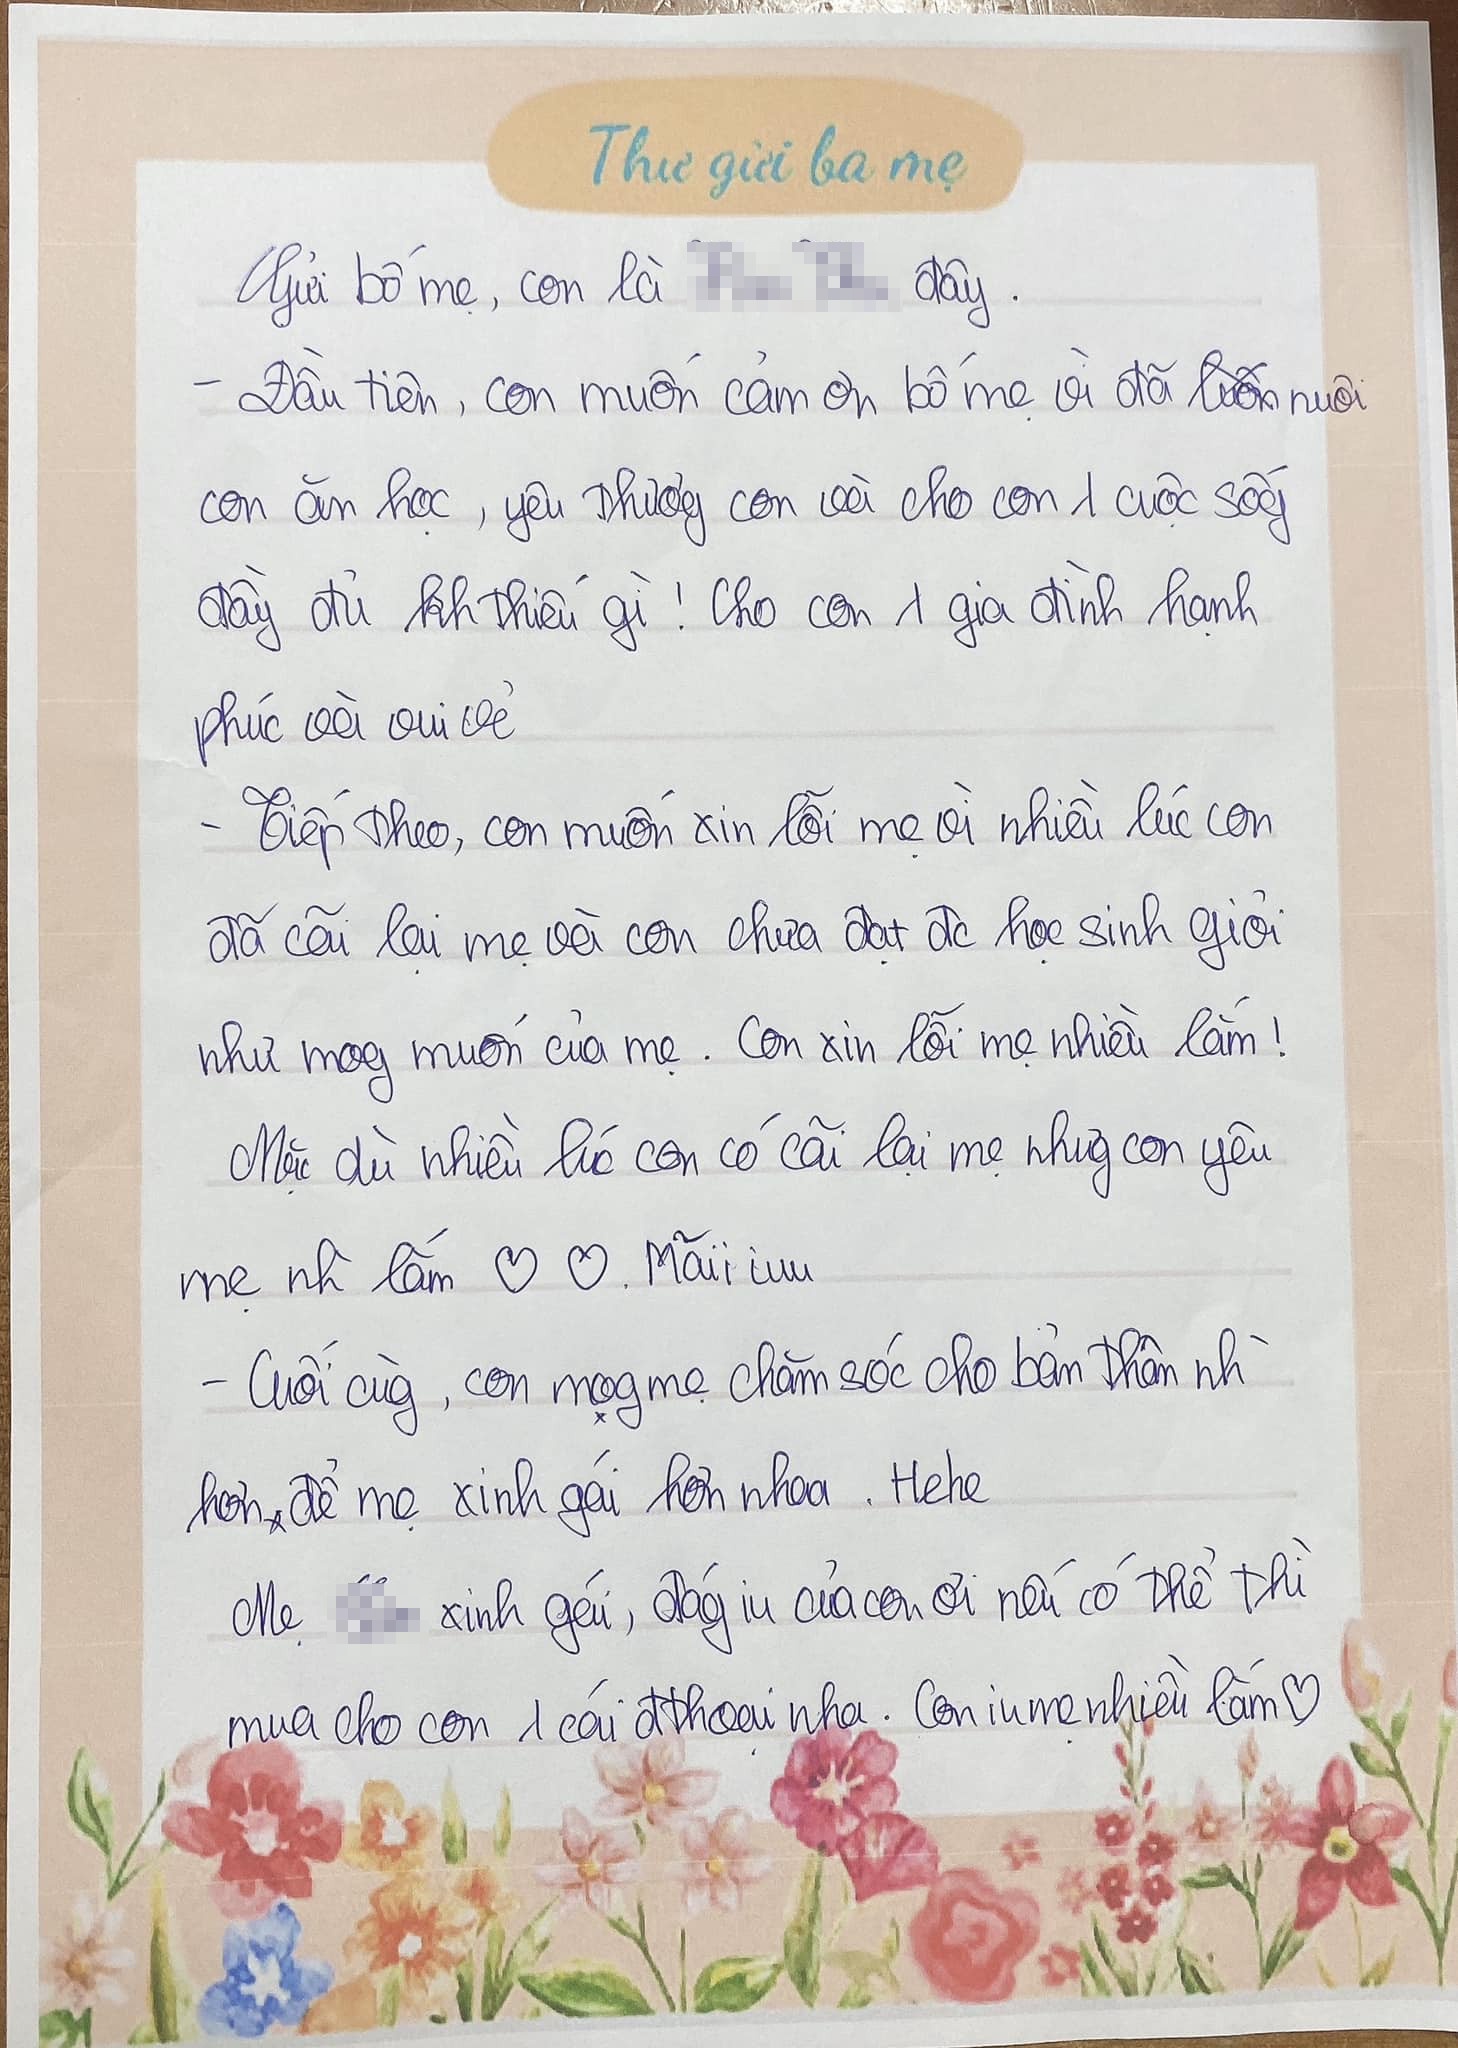 Thư gửi ba mẹ
Gửi bố mẹ, con là đây.
- Đầu tiên, con muốn cảm ơn bố mẹ vì đã nuôi
con ăn học, yêu thươg con và cho con 1 cuộc sốg
đầy đủ kh thiếu gì! Cho con 1 gia đình hạnh
phúc và vui vẻ
- Tiếp theo, con muốn xin lỗi mẹ vì nhiều lúc con
đã cãi lại mẹ và con chưa đạt đc học sinh giỏi
như mog muốn của mẹ. Con xin lỗi mẹ nhiều lắm!
Mặc dù nhiều lúc con có cãi lại mẹ nhưg con yêu
mẹ nh` lắm ♡ ♡. Mãii iuu
- Cuối cùg, con mọg mẹ chăm sóc cho bản thân nh`
hơn, để mẹ xinh gái hơn nhaa. Hehe
Mẹ xinh gái, đág iu của con ơi nếu có thể thì
mua cho con 1 cái đthoại nha. Con iu mẹ nhiều lắm ♡